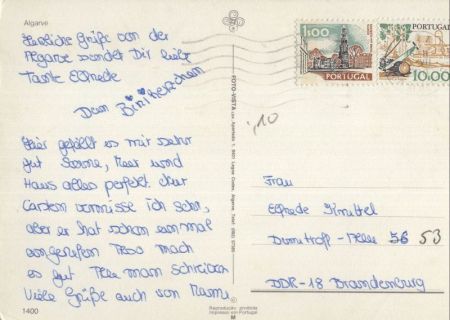 Algarve
Herzliche Grüße von der
Algarve sendet Dir liebe
Tante Elfriede
Dein
Hier gefällt es mir sehr
gut Sonne, Meer und
Haus alles perfekt. Nur
Carsten vermisse ich sehr,
aber er hat schon einmal
angerufen. Also mach
es gut
Viele Grüße auch von Mama
1400
FOTO-VISTA
Reprodução proibida
Impresso em Portugal
M
1$00
PORTUGAL
PORTUGAL
10.00
,10
Frau
Elfriede Knittel
56 53
DDR-18 Brandenburg